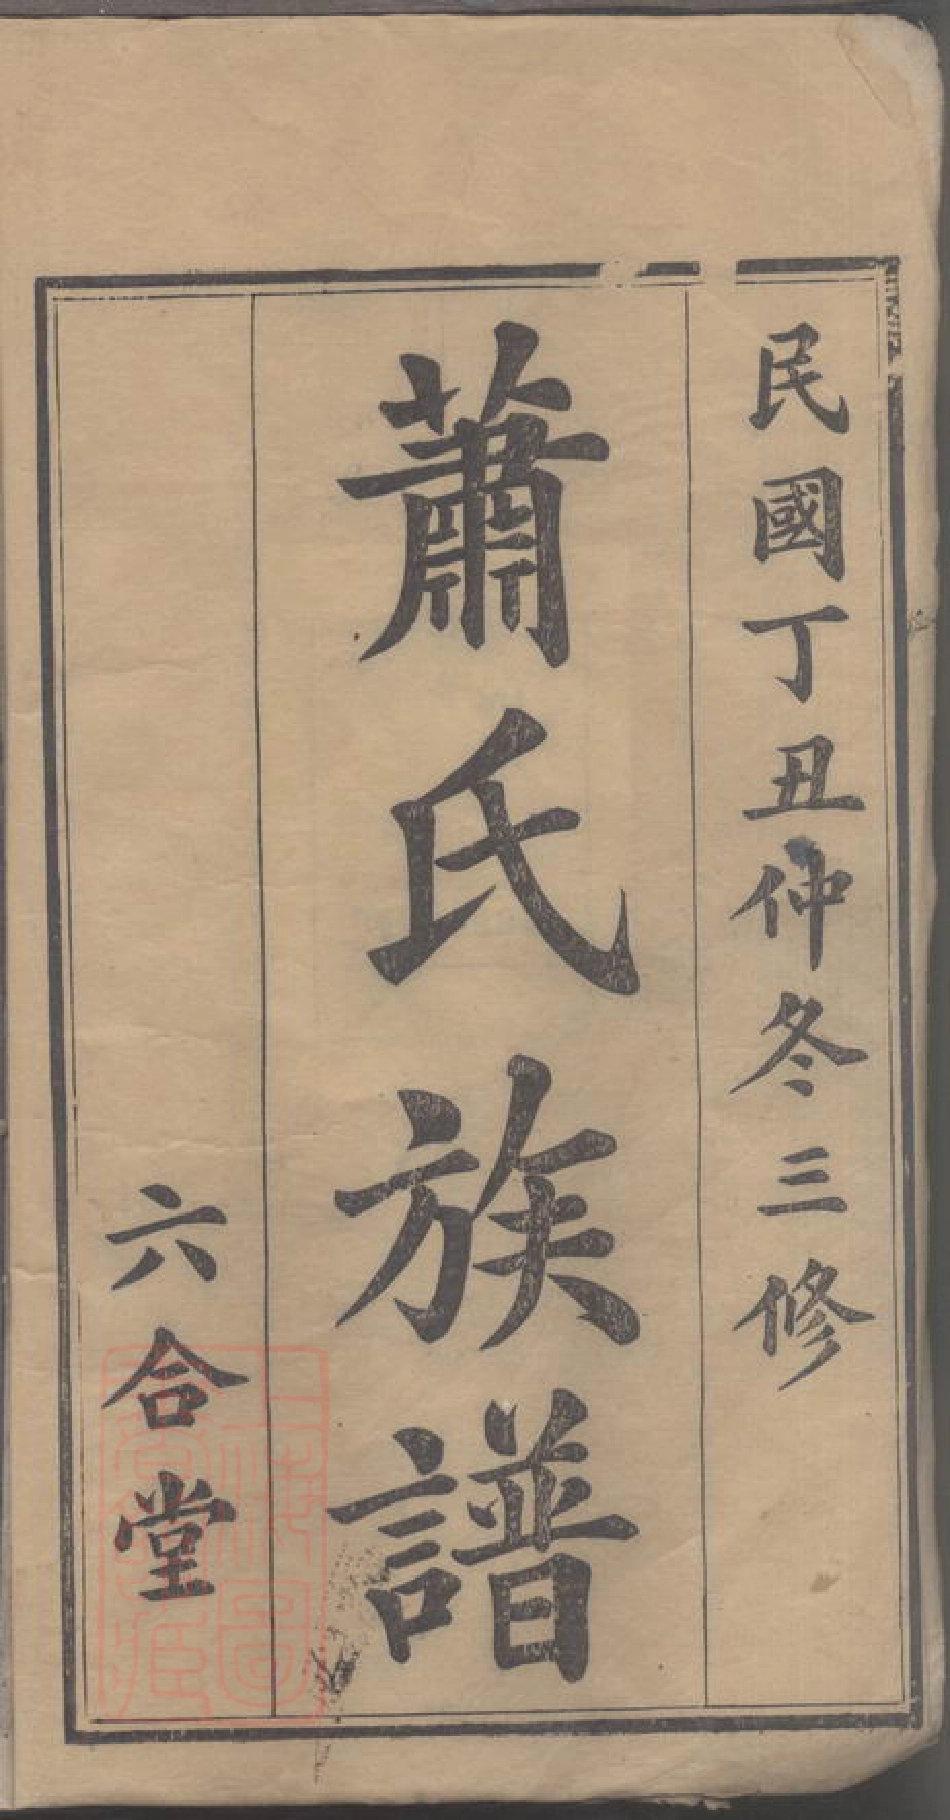 民國丁丑仲冬三修
蕭氏族譜
六合堂